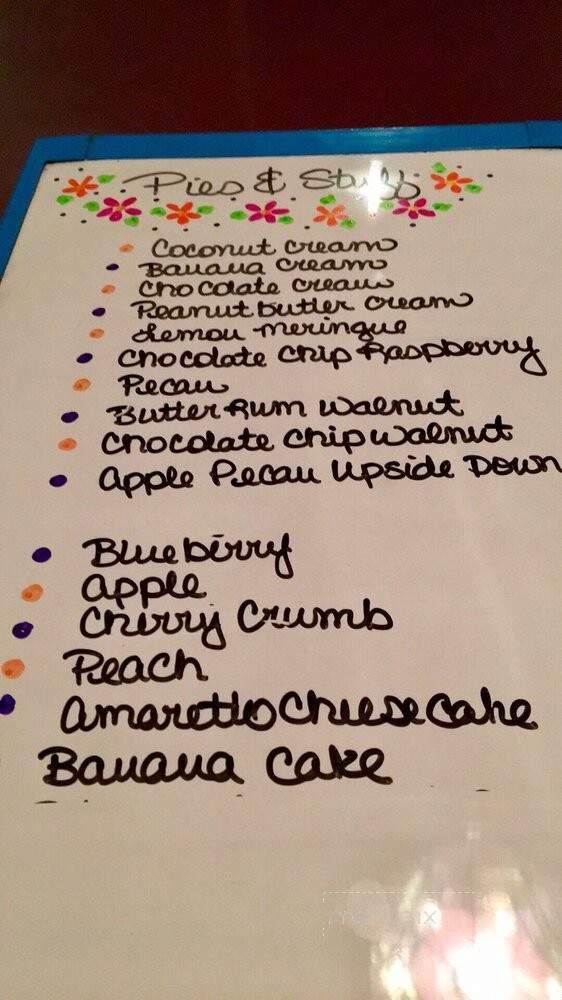 Pies & Stuff
Coconut Cream
Banana Cream
Chocolate Cream
Peanut butter Cream
Lemon Meringue
Chocolate Chip Raspberry
Pecan
Butter Rum Walnut
Chocolate Chip Walnut
Apple Pecan Upside Down
Blueberry
Apple
Cherry Crumb
Peach
Amaretto Cheese Cake
Banana Cake